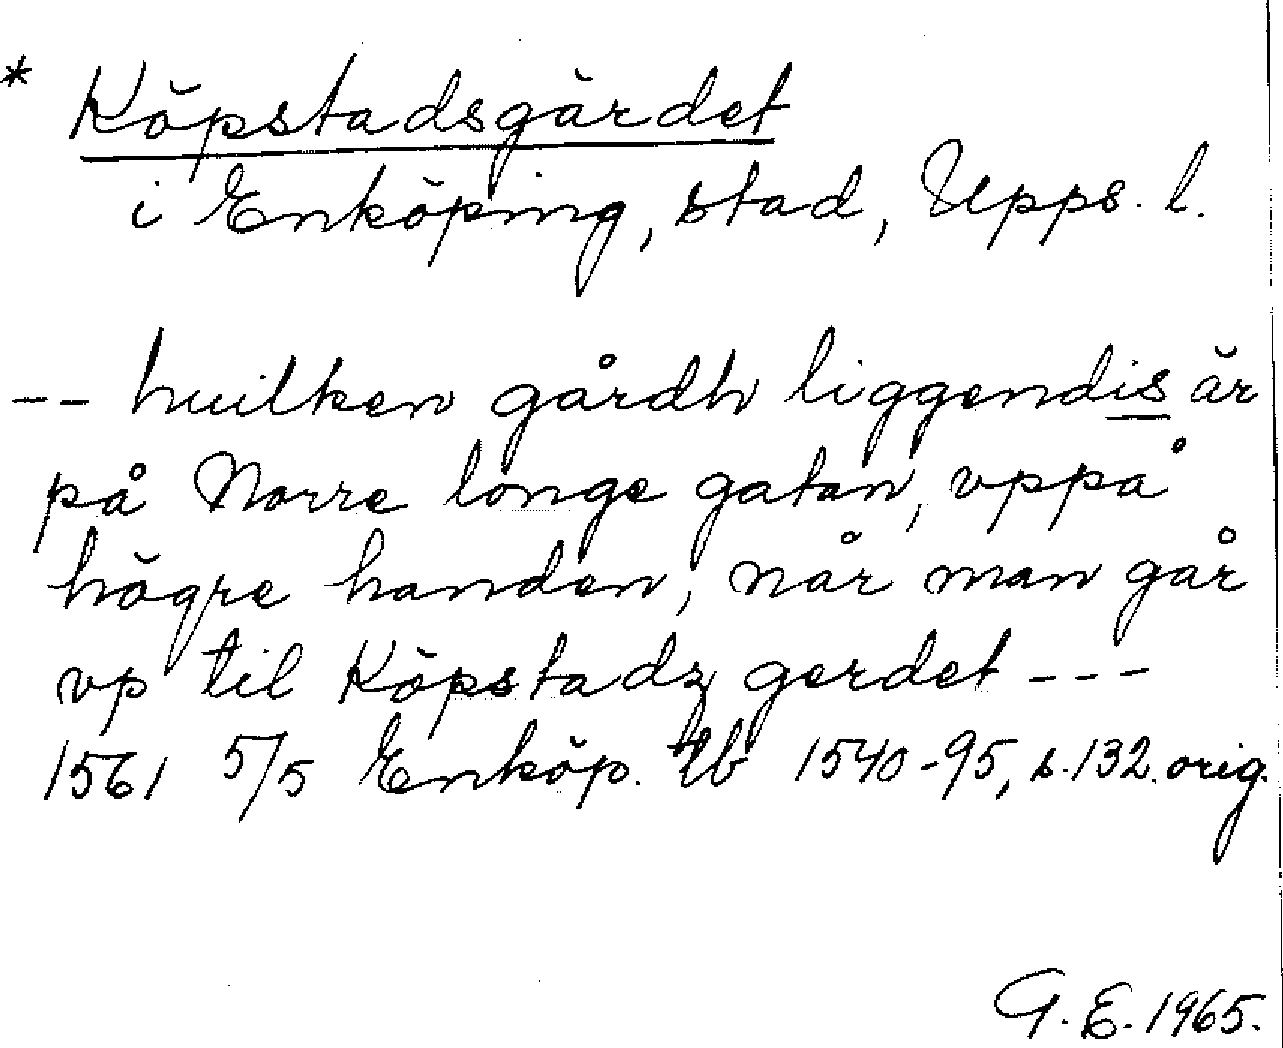 * Köpstadsgärdet
i Enköping, stad, Upps. l.
-- huilken gårdh liggendis är
på Norre longe gatan, vppå
högre handen, når man går
vp til Köpstadz gerdet ---
1561 5/5 Enköp. tb 1540-95, s.132. orig.
G. E. 1965.